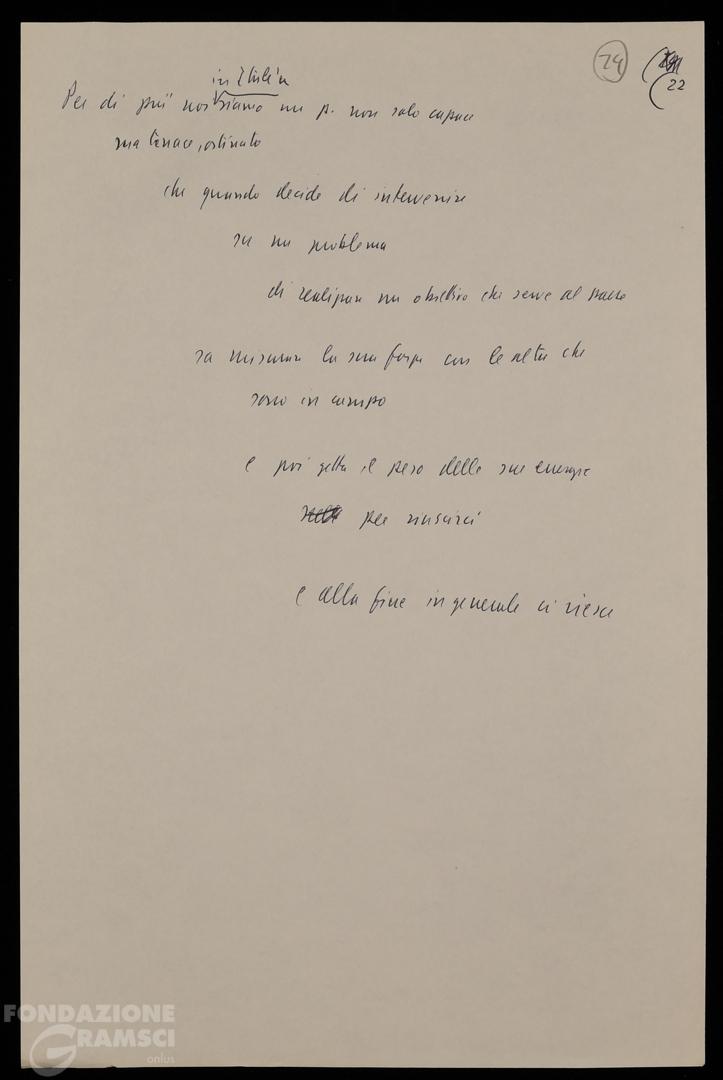 74
22
in Italia
Per di più noi siamo un p. non solo capace
ma tenace, ostinato
che quando decide di intervenire
su un problema
di realizzare un obiettivo che serve al paese
sa misurare la sua forza con le altre che
sono in campo
e poi getta il peso delle sue energie
per riuscirci
e alla fine in generale ci riesce
FONDAZIONE
GRAMSCI
onlus